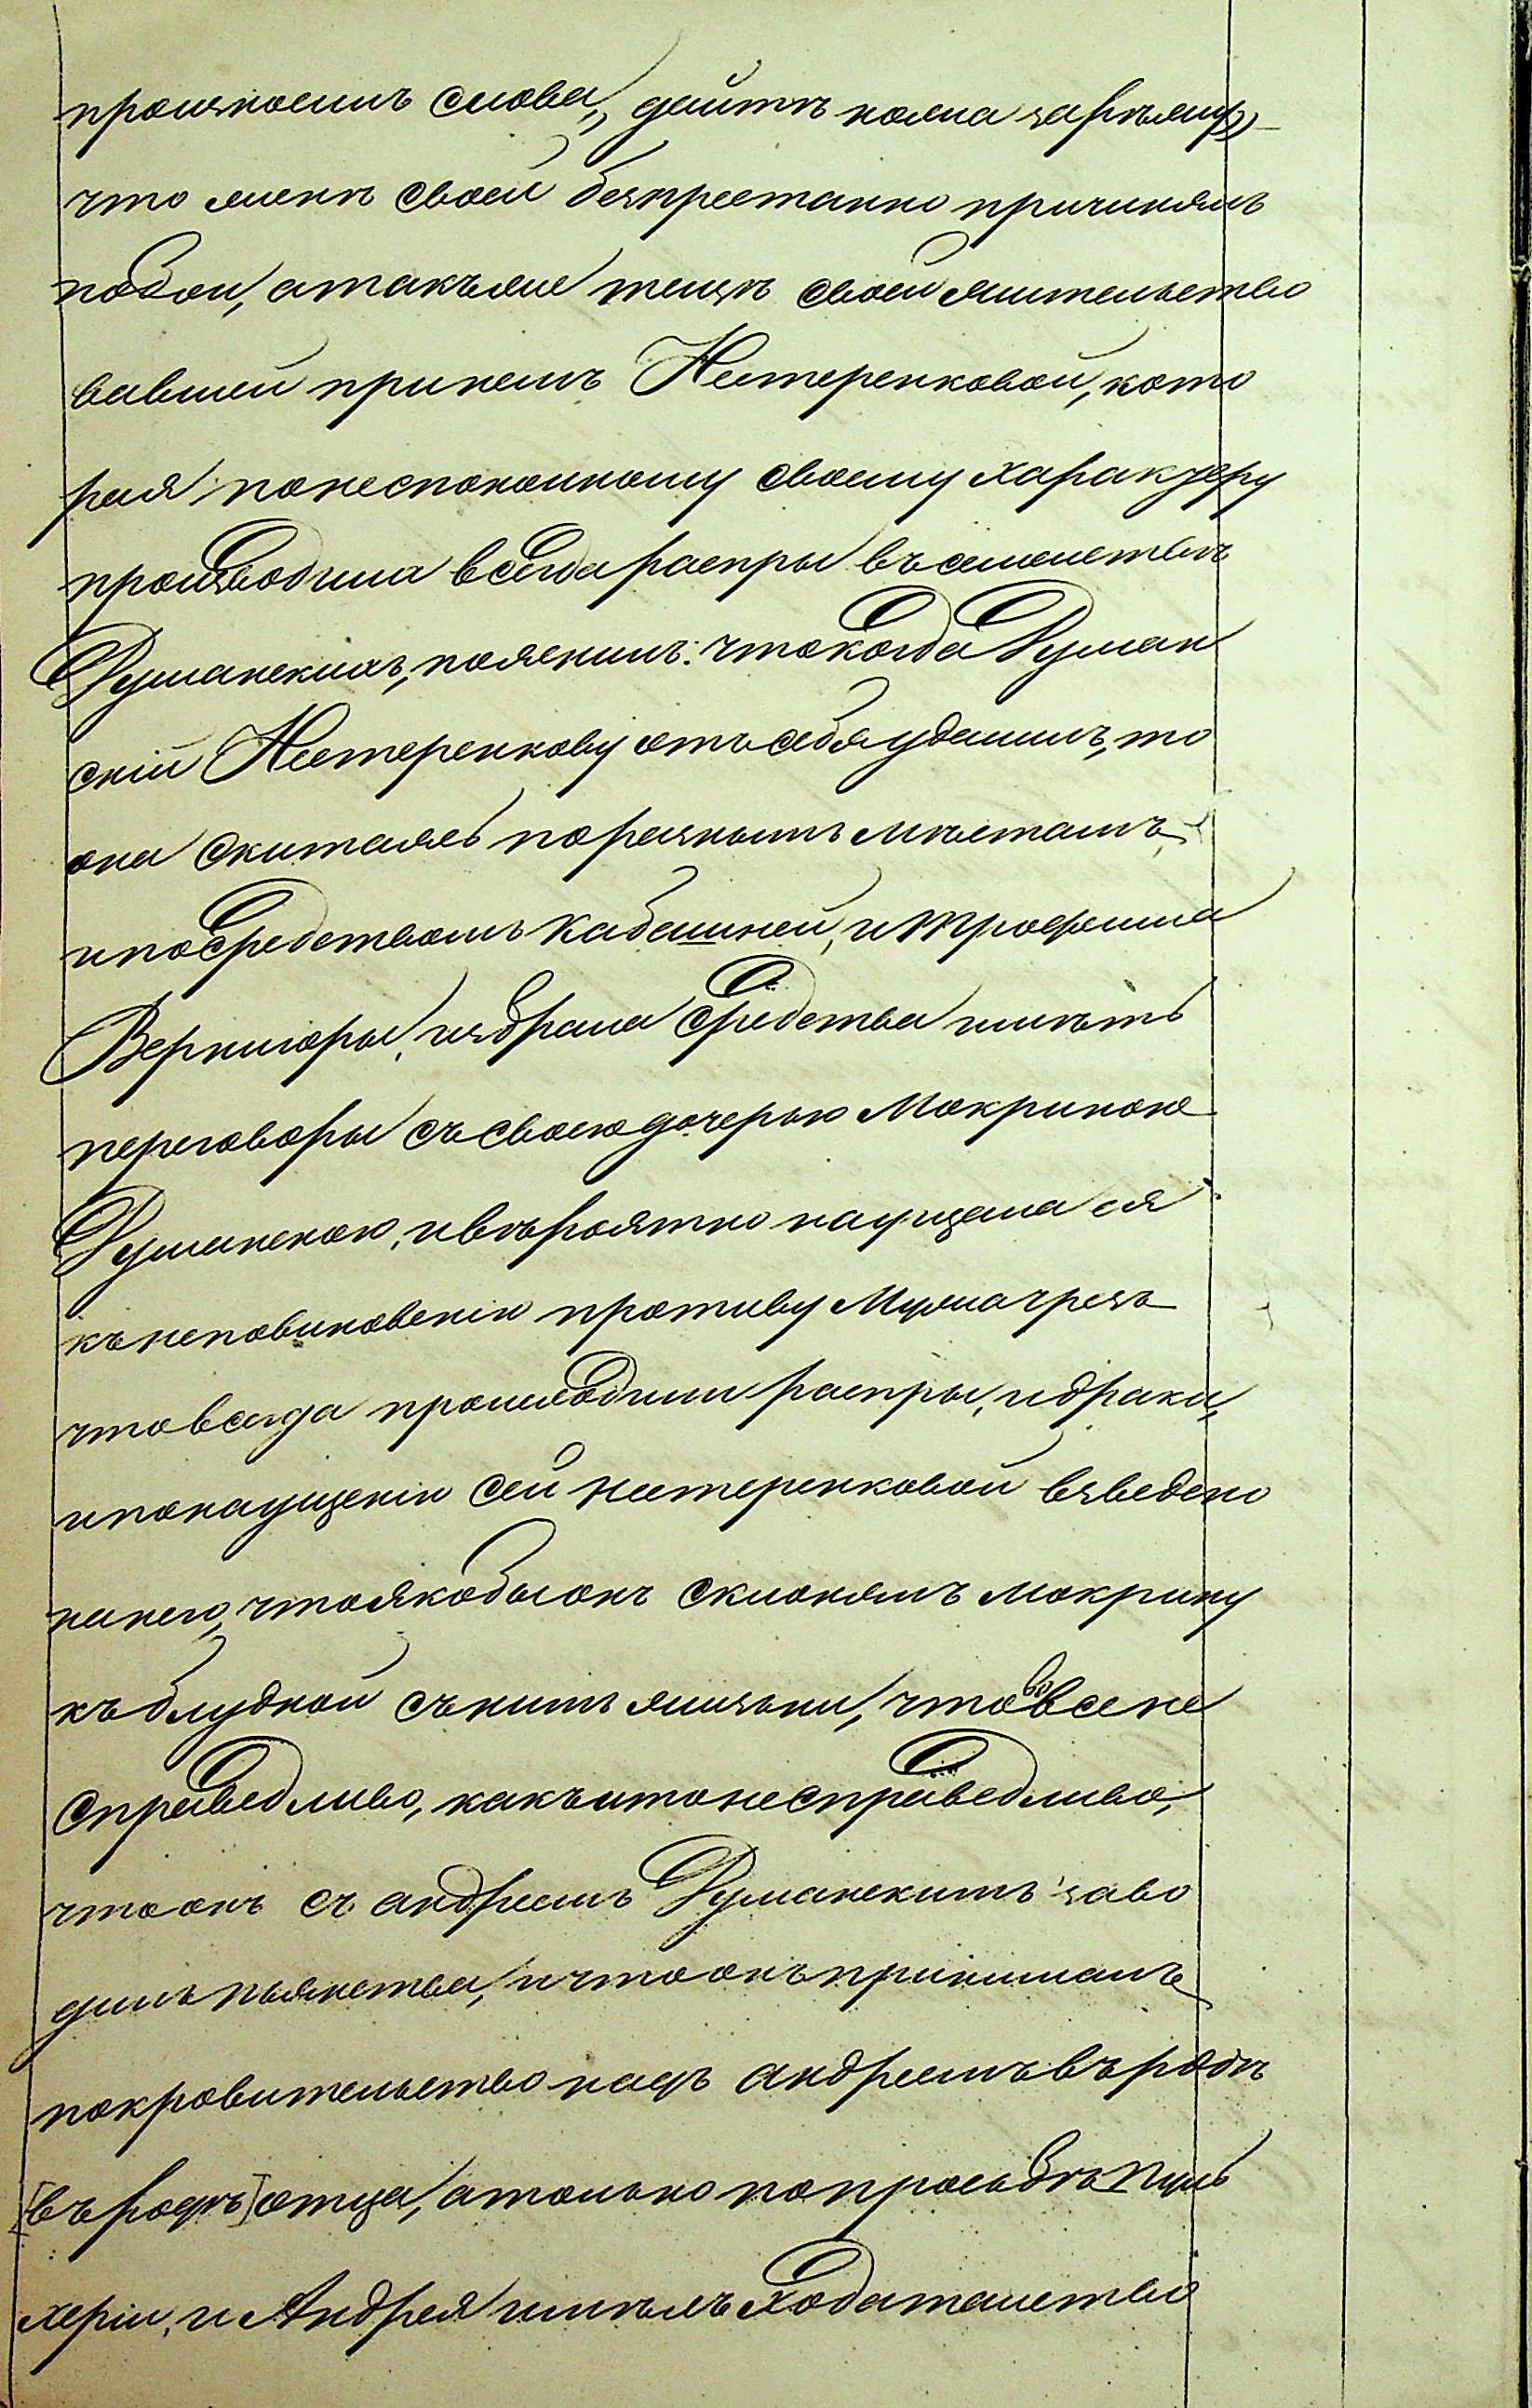 произносилъ слова, „дайтѣ ножа зарѣжу„
что женѣ своей безпрестанно причинялъ
побои, атакъже тещѣ своей жительство
вавшей принемъ Нестеренковой, кото
рая понеспокойному своему характеру
производила всегда распри въсемействѣ
Думанскихъ, пояснилъ: чтокогда Думан
скій Нестеренкову отъсебя удалилъ, то
она скиталась поразнымъ мѣстамъ,
ипосредствомъ Кабашней, и Трофима
Вернигоры, избрала средства имѣть
переговоры съсвоею дочерью Мокриною
Думанскою, ивѣроятно наущала ея
кънеповиновенію противу Мужа чрезъ
что всегда происходили распри, идраки,
ипонаущенію сей нестеренковой взведено
нанего, чтоякобы онъ склонялъ мокрину
къблудной съ нимъ жизни, что вовсе не
справедливо, какъ ито не справедливо,
что онъ съ андреемъ Думанскимъ заво
дилъ пьянства, и что онъ принималъ
покровительство надъ андреемъ въ родѣ
[въ родѣ] отца, атолько по просьбѣ Пуль
херіи, и Андрея имѣлъ ходатайство